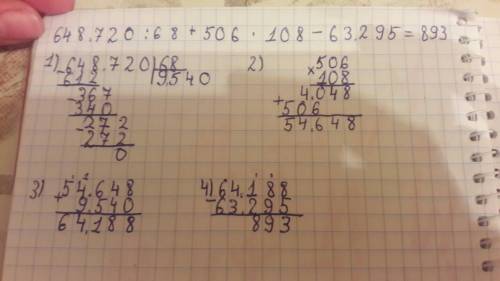 648.720 : 68 + 506 · 108 – 63.295 = 893
1) 648.720 68 2) 506
–612 9.540 × 108
–367 4.048
340 + 506
–272 54.648
272
0
3) 54.648 4) 64.188
+ 9.540 –63.295
64.188 893